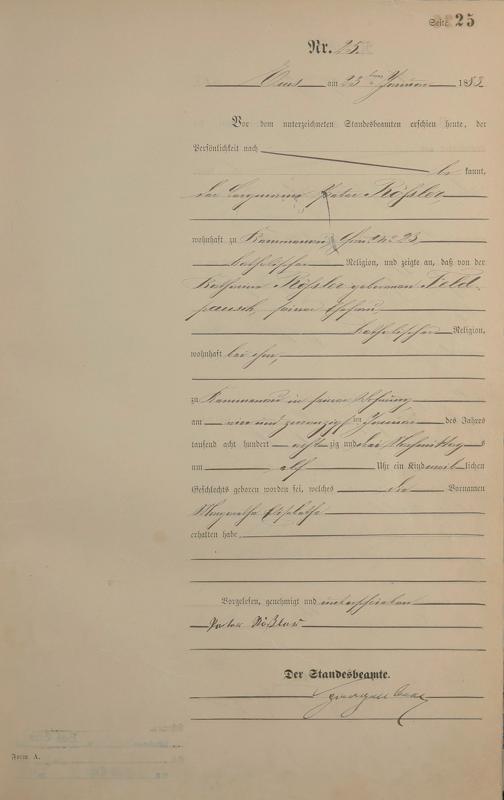 Seite 25
Nr. 25.
Ems am 23ten Januar 1883
Vor dem unterzeichneten Standesbeamten erschien heute, der
Persönlichkeit nach
be kannt,
der Bergmann Peter Rößler
wohnhaft zu
katholischer Religion, und zeigte an, daß von der
Katharina Rößler geborenen Feld-
pausch, seiner Ehefrau,
katholischer Religion,
wohnhaft bei ihm,
zu in seiner Wohnung
am ein und zwanzigsten Januar des Jahres
tausend acht hundert achtzig und drei Nachmittags
um elf Uhr ein Kind weiblichen
Geschlechts geboren worden sei, welches die Vornamen
Margaretha
erhalten habe.
Vorgelesen, genehmigt und unterschrieben
Peter Rößler
Der Standesbeamte.
Form A.